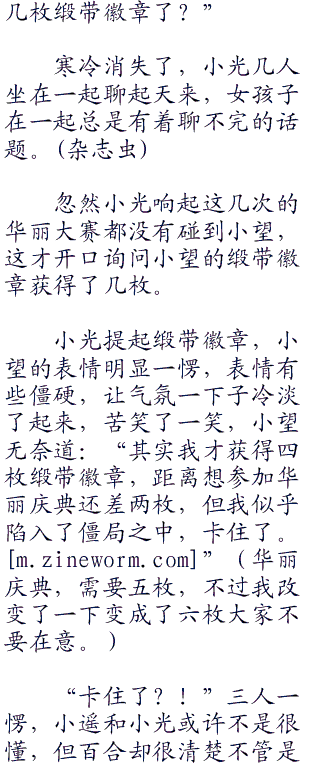 几枚缎带徽章了？”
寒冷消失了，小光几人
坐在一起聊起天来，女孩子
在一起总是有着聊不完的话
题。(杂志虫)
忽然小光响起这几次的
华丽大赛都没有碰到小望，
这才开口询问小望的缎带徽
章获得了几枚。
小光提起缎带徽章，小
望的表情明显一愣，表情有
些僵硬，让气氛一下子冷淡
了起来，苦笑了一笑，小望
无奈道：“其实我才获得四
枚缎带徽章，距离想参加华
丽庆典还差两枚，但我似乎
陷入了僵局之中，卡住了。
[m.zineworm.com]”（华丽
庆典，需要五枚，不过我改
变了一下变成了六枚大家不
要在意。）
“卡住了？！”三人一
愣，小遥和小光或许不是很
懂，但百合却很清楚不管是